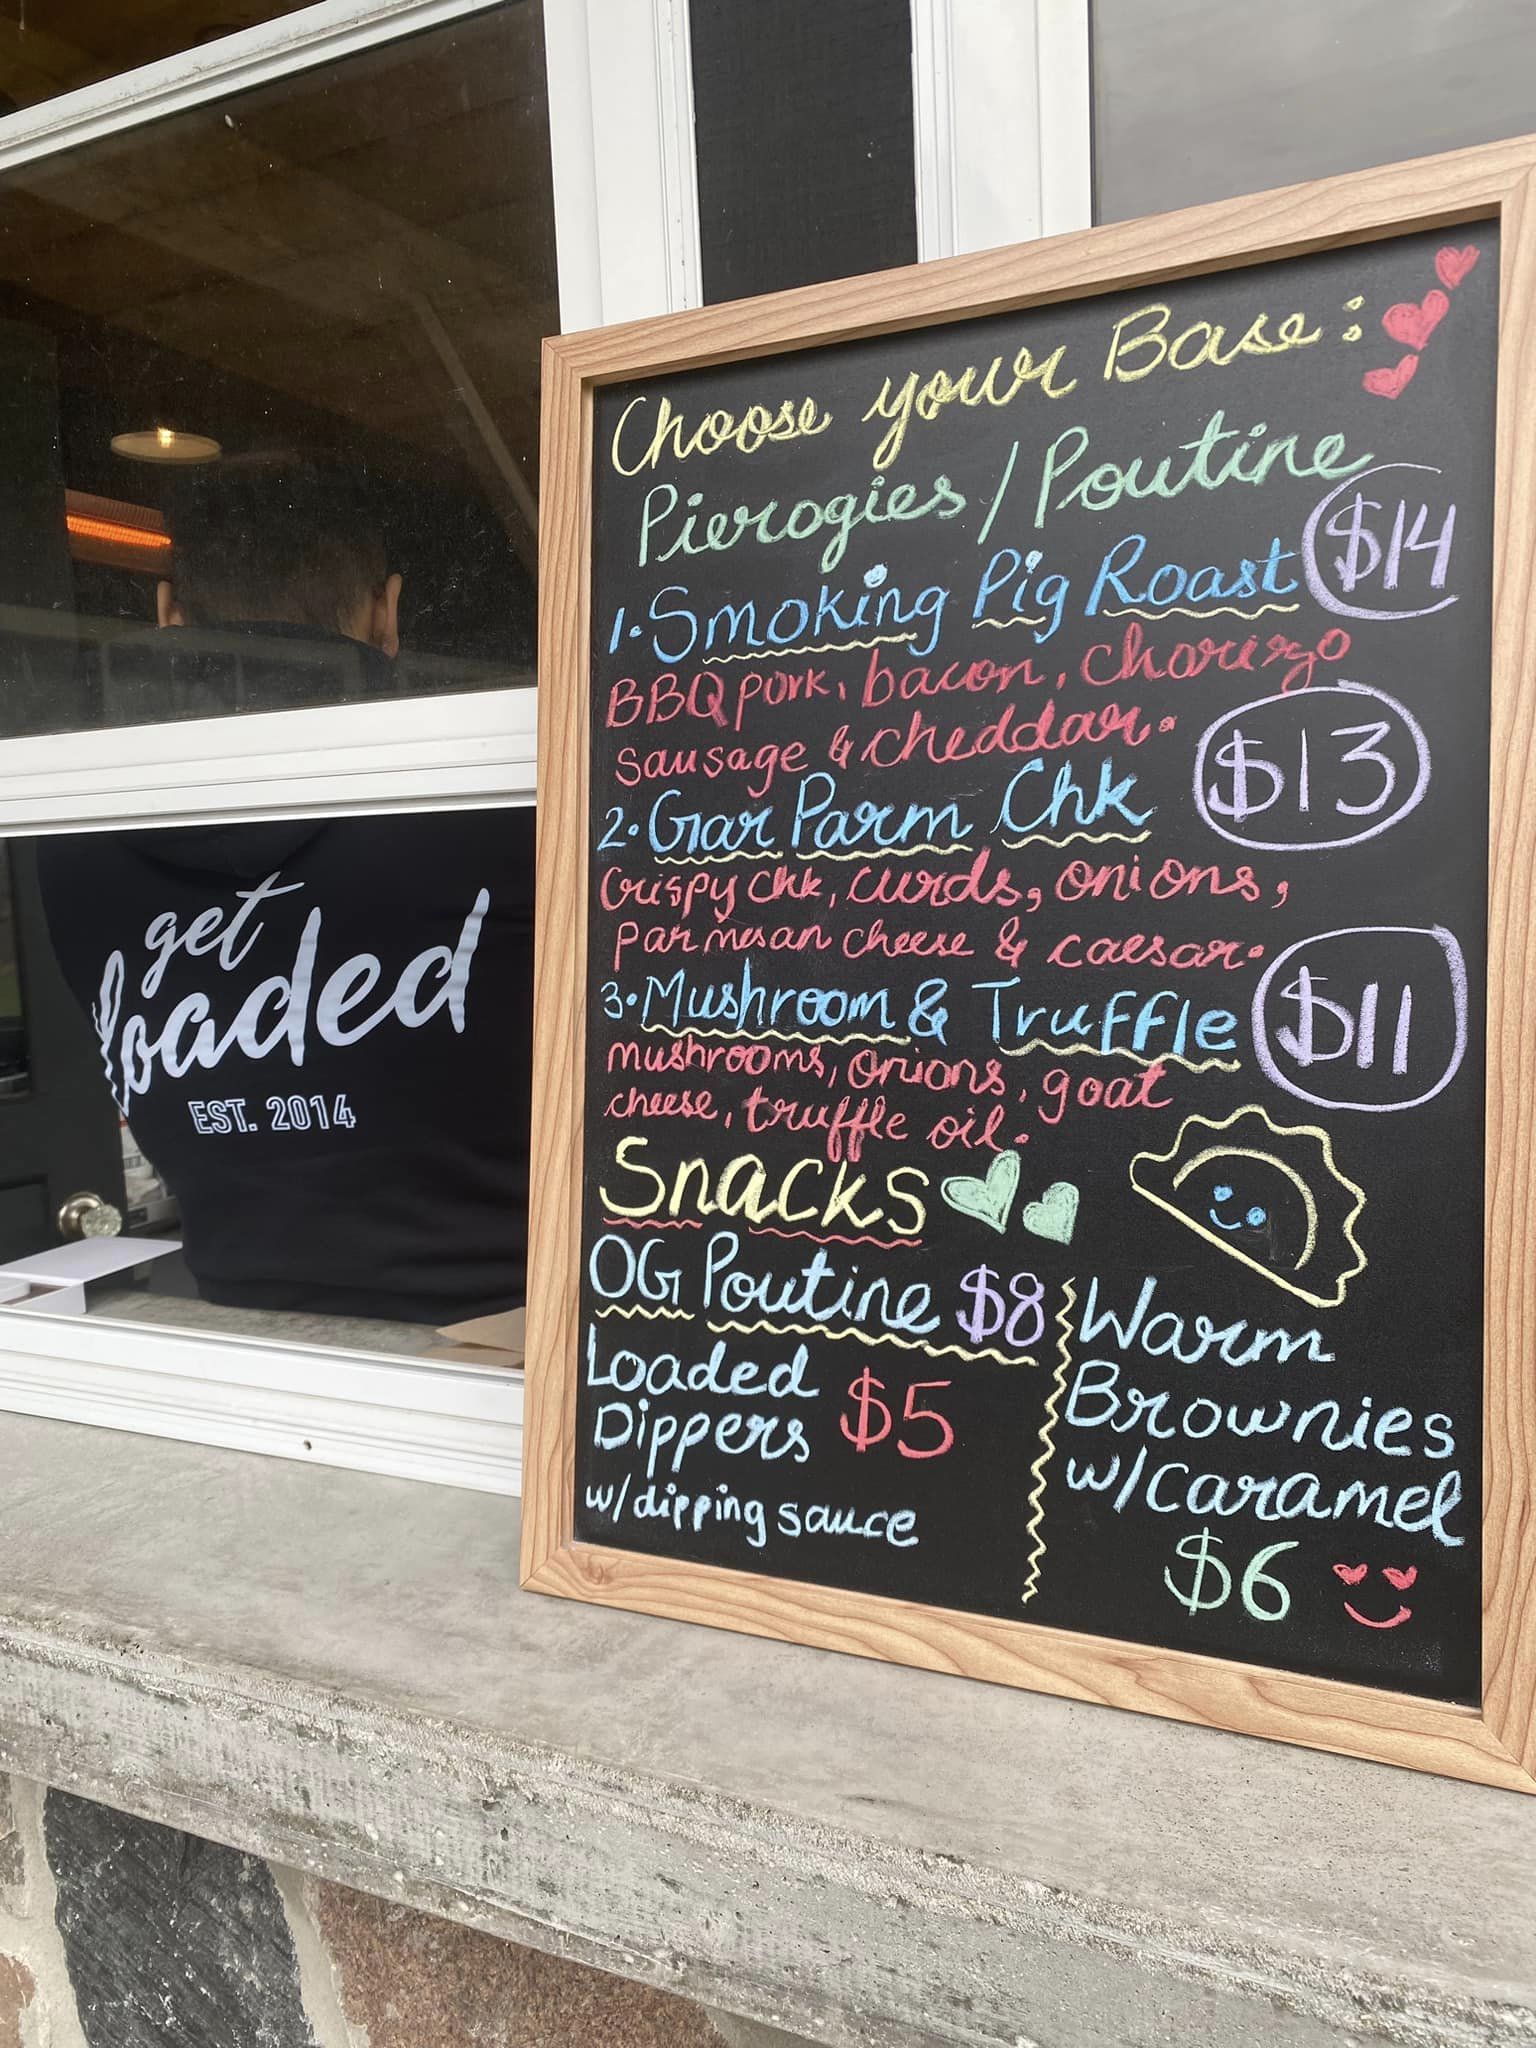 get
loaded
EST. 2014
Choose your Base:
Pierogies/Poutine
1. Smoking Pig Roast $14
BBQ pork, bacon, chorizo
sausage & cheddar.
2. Gar Parm Chk $13
Crispy chk, curds, onions,
parmesan cheese & caesar.
3. Mushroom & Truffle $11
mushrooms, onions, goat
cheese, truffle oil.
Snacks
OG Poutine $8
Loaded
Dippers $5
w/dipping sauce
Warm
Brownies
w/caramel
$6